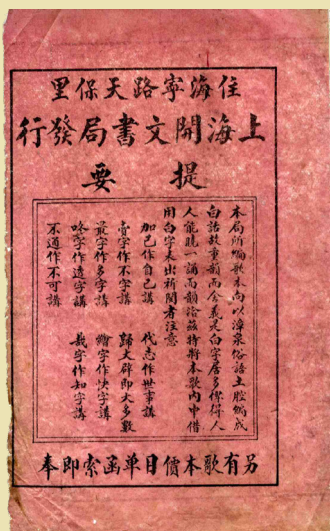 住海寧路天保里
上海開文書局發行
提要
本局所編歌本向以漳泉俗語土腔編成
白話故重韻而舍義是白字居多俾得人
人能曉一誦而韻洽茲特將本歌內中借
用白字表出祈閱者注意
加己作自己講 代志作世事講
賣字作不字講 歸大辟即大多數
字作多字講 字作快字講
字作透字講 栽字作知字講
不通作不可講
另有歌本價目單函索即奉